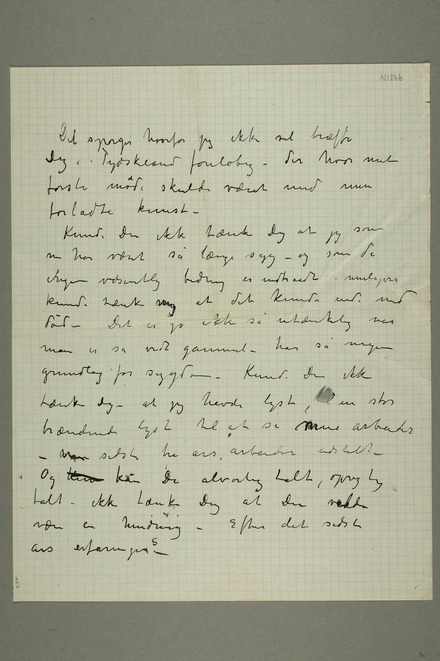 N1866
Det spørges hvorfor jeg ikke vil træffe
Dig i Tydskland foreløbig – der hvor mit
første møde skulde været med min
forladte kunst –
Kunde Du ikke tænke Dig at jeg som
nu har været så længe syg – og som da
ingen væsentlig bedring er indtraadt – muligens
kunde tænke mig at det kunde ende med
død – Det er jo ikke så utænkelig når
man er så vidt gammel – har så megen
grundlag for sygdom – Kunde Du ikke
tænke Dig – at jeg havde lyst, en stor
brændende lyst til at se mine arbeider
– sidste tre års arbeider udstilt –
Og kan Du alvorlig talt, oprigtig
talt – ikke tænke Dig at Du vilde
være en hindring – Efter det sidste
års erfaringer –